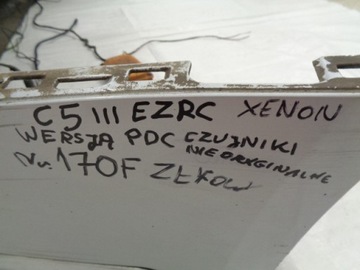 C5 III EZRC XENON
WERSJA PDC CZUJNIKI
NIEORYGINALNE
170F